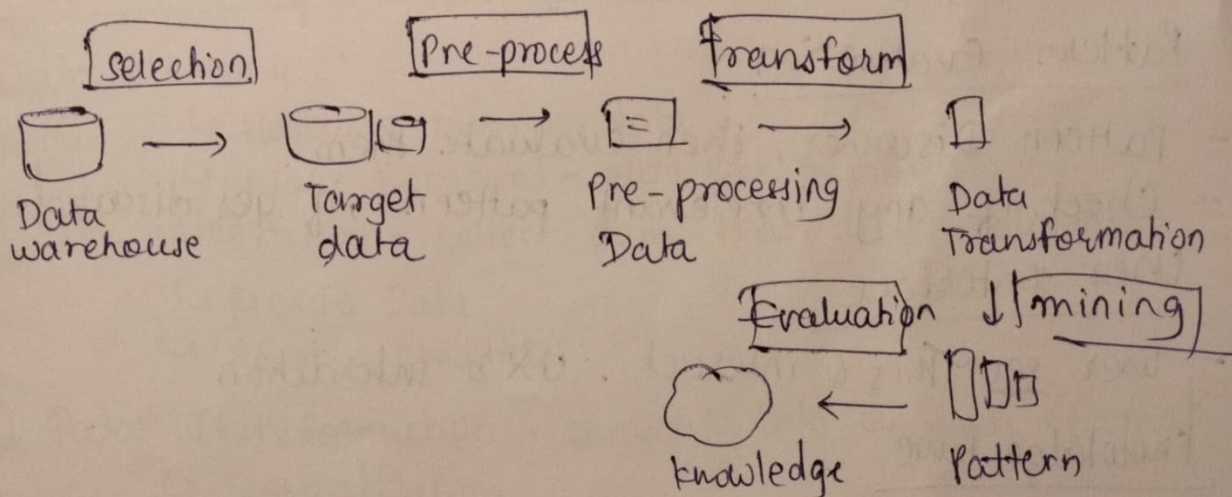 Selection
Pre-process
Transform
Data
warehouse
Target
data
=
Pre-processing
Data
Data
Transformation
Evaluation
mining
knowledge
Pattern